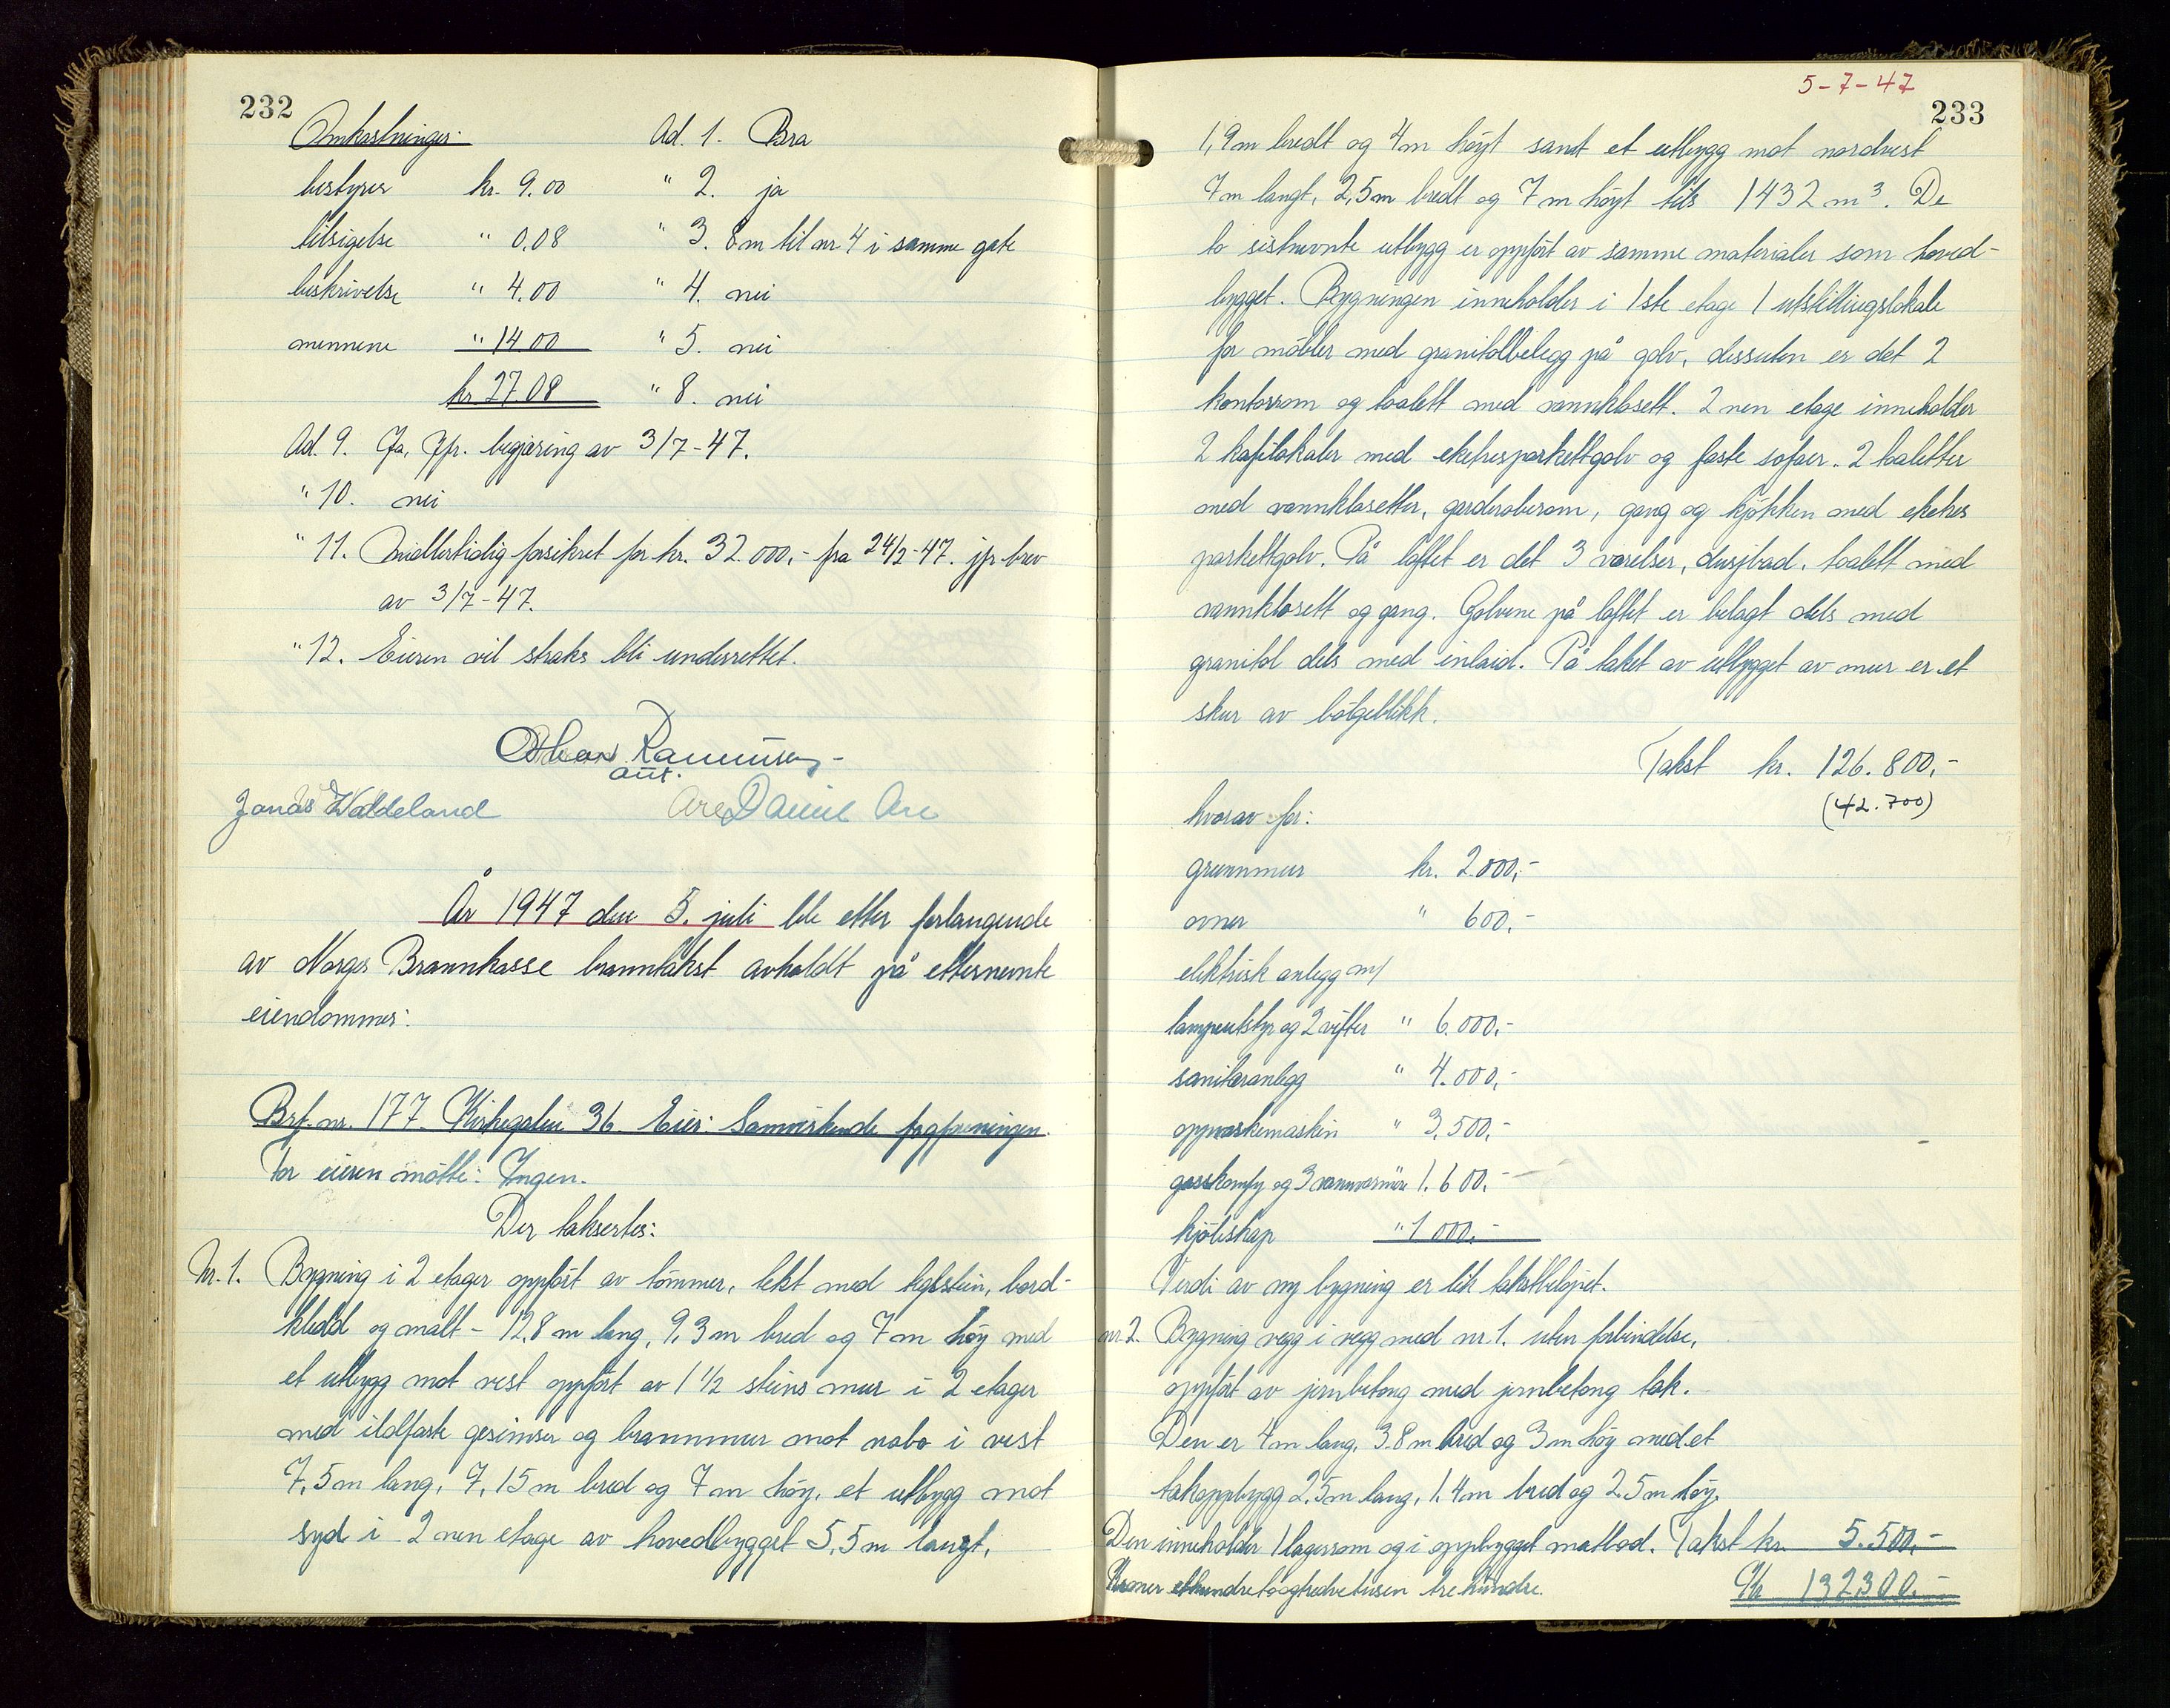 232
Omkostninger:
bestyrer kr. 9.00
tilsigelse " 0.08
beskrivelse " 4.00
mennene " 14 00
kr 27.08
Ad. 1. Bra
" 2. ja
" 3. 8 m til nr 4 i samme gate
" 4. nei
" 5. nei
" 8. nei
Ad. 9. Ja, Jfr. begjæring av 3/7-47.
" 10. nei
" 11. Midlertidig forsikret for kr. 32.000,- fra 24/2-47. jfr brev
av 3/7-47.
" 12. Eieren vil straks bli underrettet.
Rasmussen
aut.
Jonas Waldeland
Are Daniel Are
År 1947 den 5. juli ble etter forlangende
av Norges Brannkasse branntakst avholdt på etternevnte
eiendommer:
Brf. nr. 177. Kirkegaten 36 Eier: Samvirkende fagforeningen.
For eieren møtte: Ingen.
Der taksertes:
Nr. 1. Bygning i 2 etager oppført av tømmer, tekt med teglstein, bord-
kledd og malt - 12,8 m lang, 9,3 m bred og 7 m høy med
et utbygg mot vest oppført av 1 1/2 steins mur i 2 etager
med ildfaste gesimser og brannmur mot nabo i vest
7,5 m lang, 7,15 m bred og 7 m høy, et utbygg mot
syd i 2 nen etage av hovedbygget 5,5 m langt,
5-7-47
233
1,9 m bredt og 4 m høyt samt et utbygg mot nordvest
7 m langt, 2,5 m bredt og 7 m høyt tils 1432 m³. De
to sistnevnte utbygg er oppført av samme materialer som hoved-
bygget. Bygningen inneholder i 1ste etage 1 utstillingslokale
for møbler med granitolbelegg på golv, dessuten er det 2
kontorrom og toalett med vannklosett. 2 nen etage inneholder
2 kafélokaler med eketresparkettgolv og faste sofaer. 2 toaletter
med vannklosetter, garderoberom, gang og kjøkken med eketres
parkettgolv. På loftet er det 3 værelser, dusjbad, toalett med
vannklosett og gang. Golvene på loftet er belagt dels med
granitol dels med inlaid. På taket av utbygget av mur er et
skur av bølgeblikk.
Takst kr. 126.800,-
(42.700)
hvorav for:
grunnmur kr. 2.000,-
ovner " 600,-
elektrisk anlegg m/
lampeutstyr og 2 vifter " 6.000,-
sanitæranlegg " 4.000,-
oppvaskemaskin " 3.500,-
gasskomfy og 3 vannvarmere 1.600,-
kjøleskap " 1 000,-
Verdi av ny bygning er lik takstbeløpet.
nr. 2. Bygning vegg i vegg med nr 1. uten forbindelse,
oppført av jernbetong med jernbetong tak.
Den er 4 m lang, 3.8 m bred og 3 m høy med et
takoppbygg 2,5 m lang, 1,4 m bred og 2.5 m høy.
Den inneholder 1 lagerrom og i oppbygget matbod. Takst kr. 5.500,-
Kroner etthundretoogtredvetusen tre hundre. Kr 132.300,-